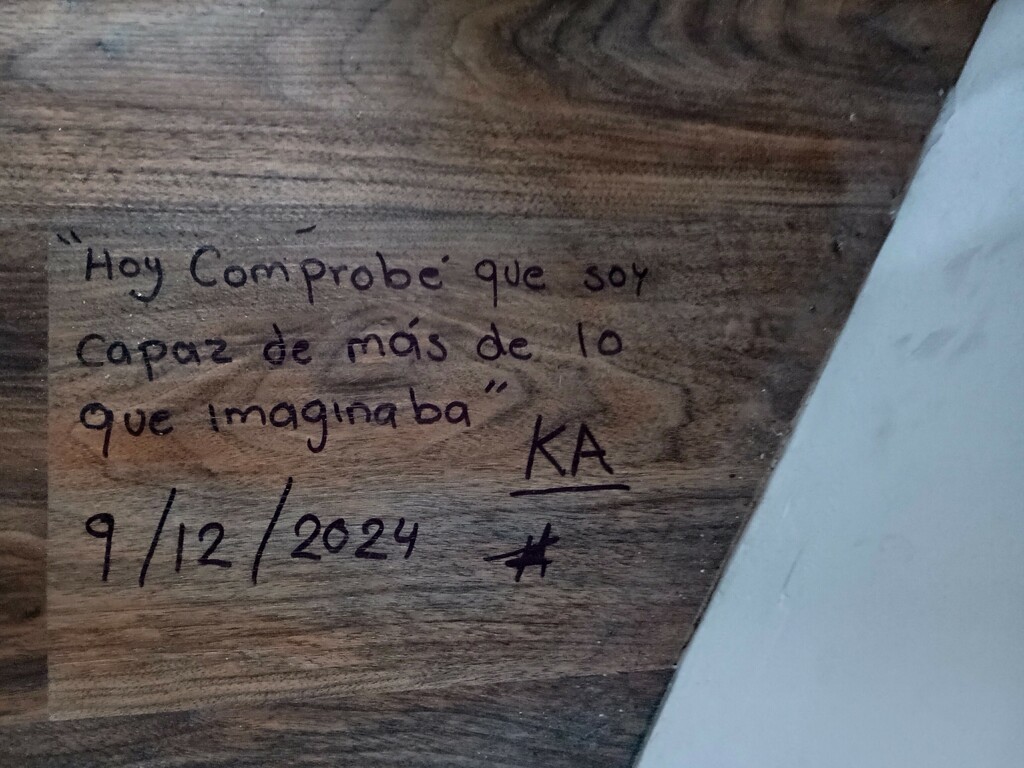 "Hoy Comprobé que soy
capaz de más de lo
que imaginaba"
KA
9/12/2024 #